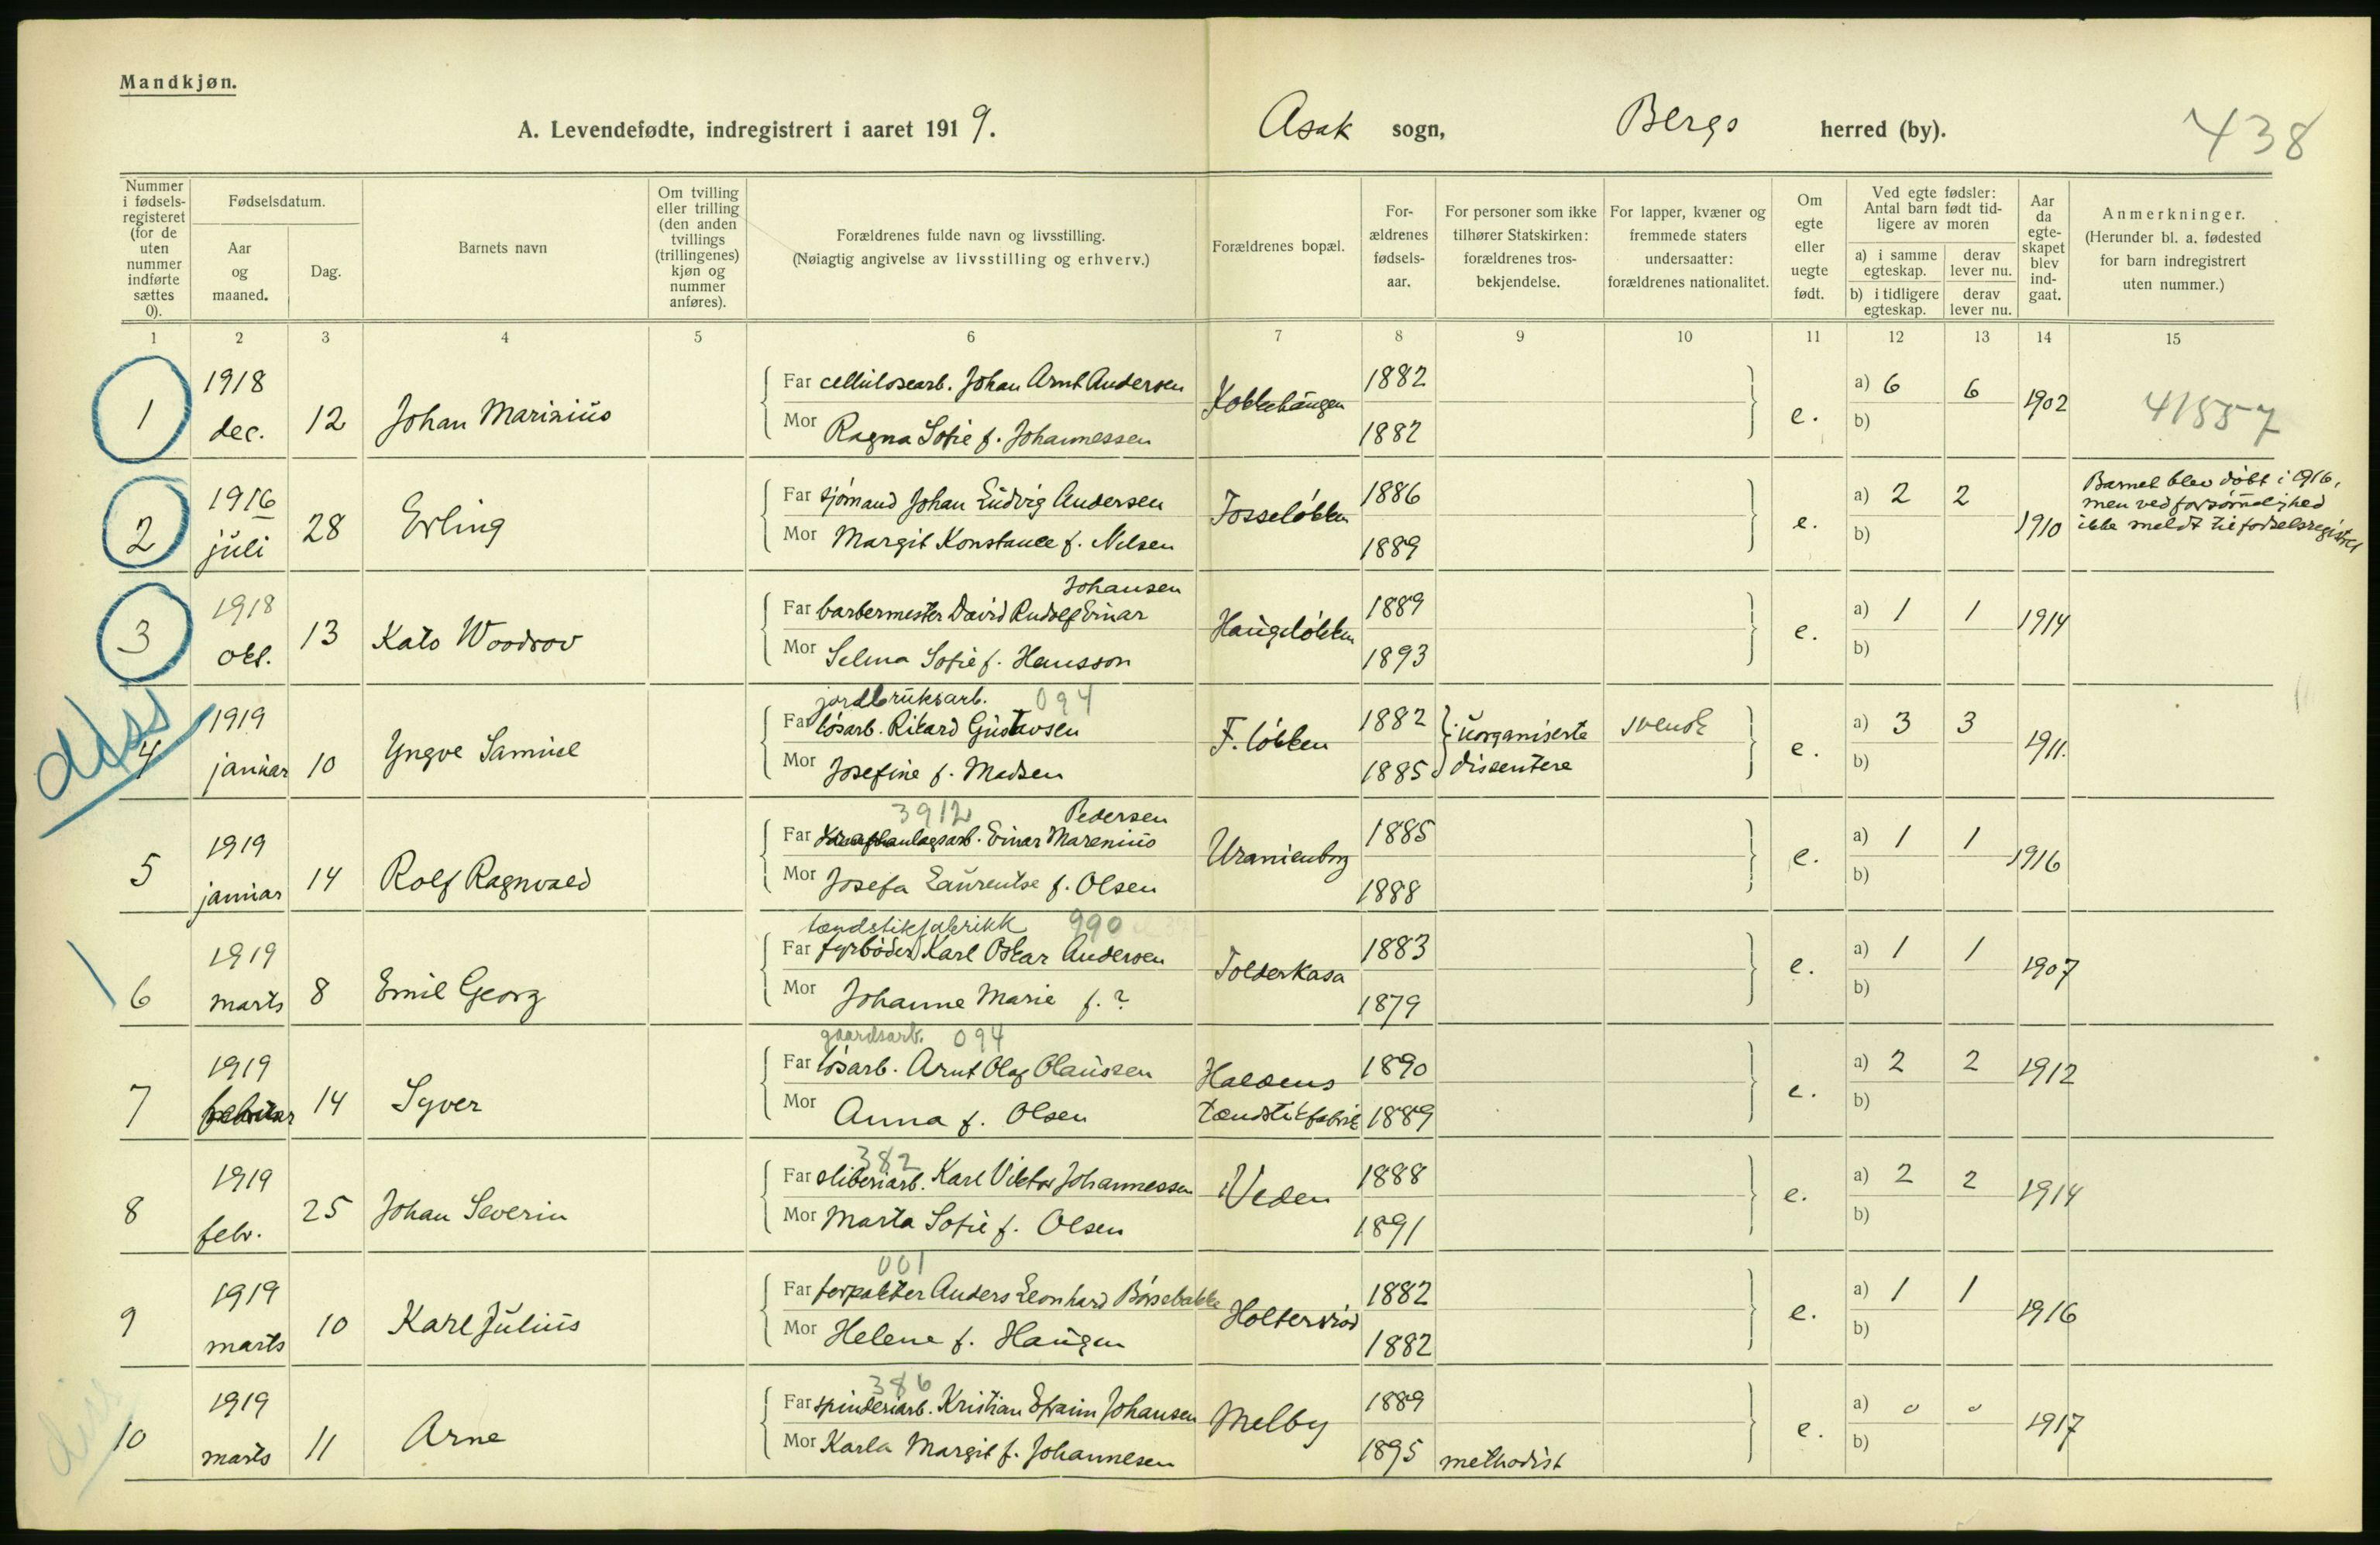 Mandkjøn.
A. Levendefødte, indregistrert i aaret 1919.
Asak sogn, Bergs herred (by).
438
Nummer i fødselsregisteret (for de uten nummer indførte sættes 0).
Fødselsdatum.
Aar og maaned.
Dag.
Barnets navn
Om tvilling eller trilling (den anden tvillings (trillingenes) kjøn og nummer anføres).
Forældrenes fulde navn og livsstilling.
(Nøiagtig angivelse av livsstilling og erhverv.)
Forældrenes bopæl.
Forældrenes fødselsaar.
For personer som ikke tilhører Statskirken: forældrenes trosbekjendelse.
For lapper, kvæner og fremmede staters undersaatter: forældrenes nationalitet.
Om egte eller uegte født.
Ved egte fødsler: Antal barn født tidligere av moren
a) i samme egteskap.
derav lever nu.
b) i tidligere egteskap.
derav lever nu.
Aar da egteskapet blev indgaat.
Anmerkninger.
(Herunder bl. a. fødested for barn indregistrert uten nummer.)
1 2 3 4 5 6 7 8 9 10 11 12 13 14 15
1 1918 dec. 12 Johan Marinius
Far cellulosearb. Johan Arnt Andersen
Mor Ragna Sofie f. Johannessen
1882
1882
e. a) 6 6 1902
b)
41557
2 1916 juli 28 Erling
Far sjømand Johan Ludvig Andersen
Mor Margit Konstance f. Nilsen
Fosseløkken
1886
1889
e. a) 2 2 1910
b)
Barnet blev døbt i 1916,
men ved forsømelighed
ikke meldt til fødselsregistret
3 1918 okt. 13 Kato Woodrov
Johansen
Far barbermester David Rudolf Einar
Mor Selma Sofie f. Hansson
Haugeløkken
1889
1893
e. a) 1 1 1914
b)
diss
4 1919 januar 10 Yngve Samuel
jordbruksarb. 094
Far løsarb. Rikard Gustavsen
Mor Josefine f. Madsen
F. løkken
1882
1885
uorganiserte
dissentere
svensk
e. a) 3 3 1911.
b)
5 1919 januar 14 Rolf Ragnvald
3912 Pedersen
Far Einar Marenius
Mor Josefa Laurentse f. Olsen
Uranienborg
1885
1888
e. a) 1 1 1916
b)
6 1919 marts 8 Emil Georg
tændstikfabrikk 990
Far fyrbøder Karl Oskar Andersen
Mor Johanne Marie f. ?
Tolderkasa
1883
1879
e. a) 1 1 1907
b)
7 1919 februar 14 Syver
gaardsarb. 094
Far løsarb. Arnt Olaf Olaussen
Mor Anna f. Olsen
Haldens
tændstikfabrik
1890
1889
e. a) 2 2 1912
b)
8 1919 febr. 25 Johan Severin
382
Far sliberiarb. Karl Viktor Johannessen
Mor Marta Sofie f. Olsen
Veden
1888
1891
e. a) 2 2 1914
b)
9 1919 marts 10 Karl Julius
001
Far forpakter Anders Leonhard Børsebakke
Mor Helene f. Haugen
Holtersrød
1882
1882
e. a) 1 1 1916
b)
diss
10 1919 marts 11 Arne
386
Far spinderiarb. Kristian Efraim Johansen
Mor Karla Margit f. Johannesen
Melby
1889
1895
methodist
e. a) 0 0 1917
b)